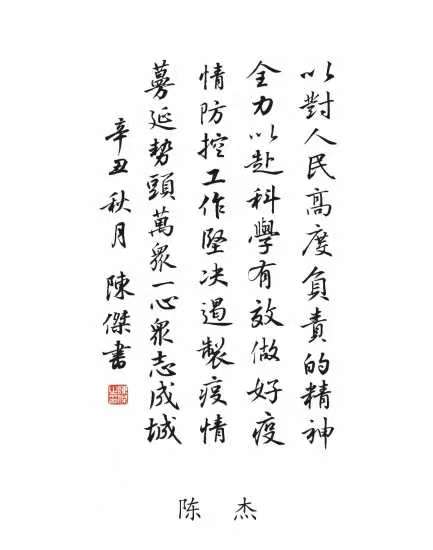 以對人民高度負責的精神
全力以赴科學有效做好疫
情防控工作堅决遏製疫情
蔓延势頭萬眾一心眾志成城
辛丑秋月 陳傑書
陈 杰